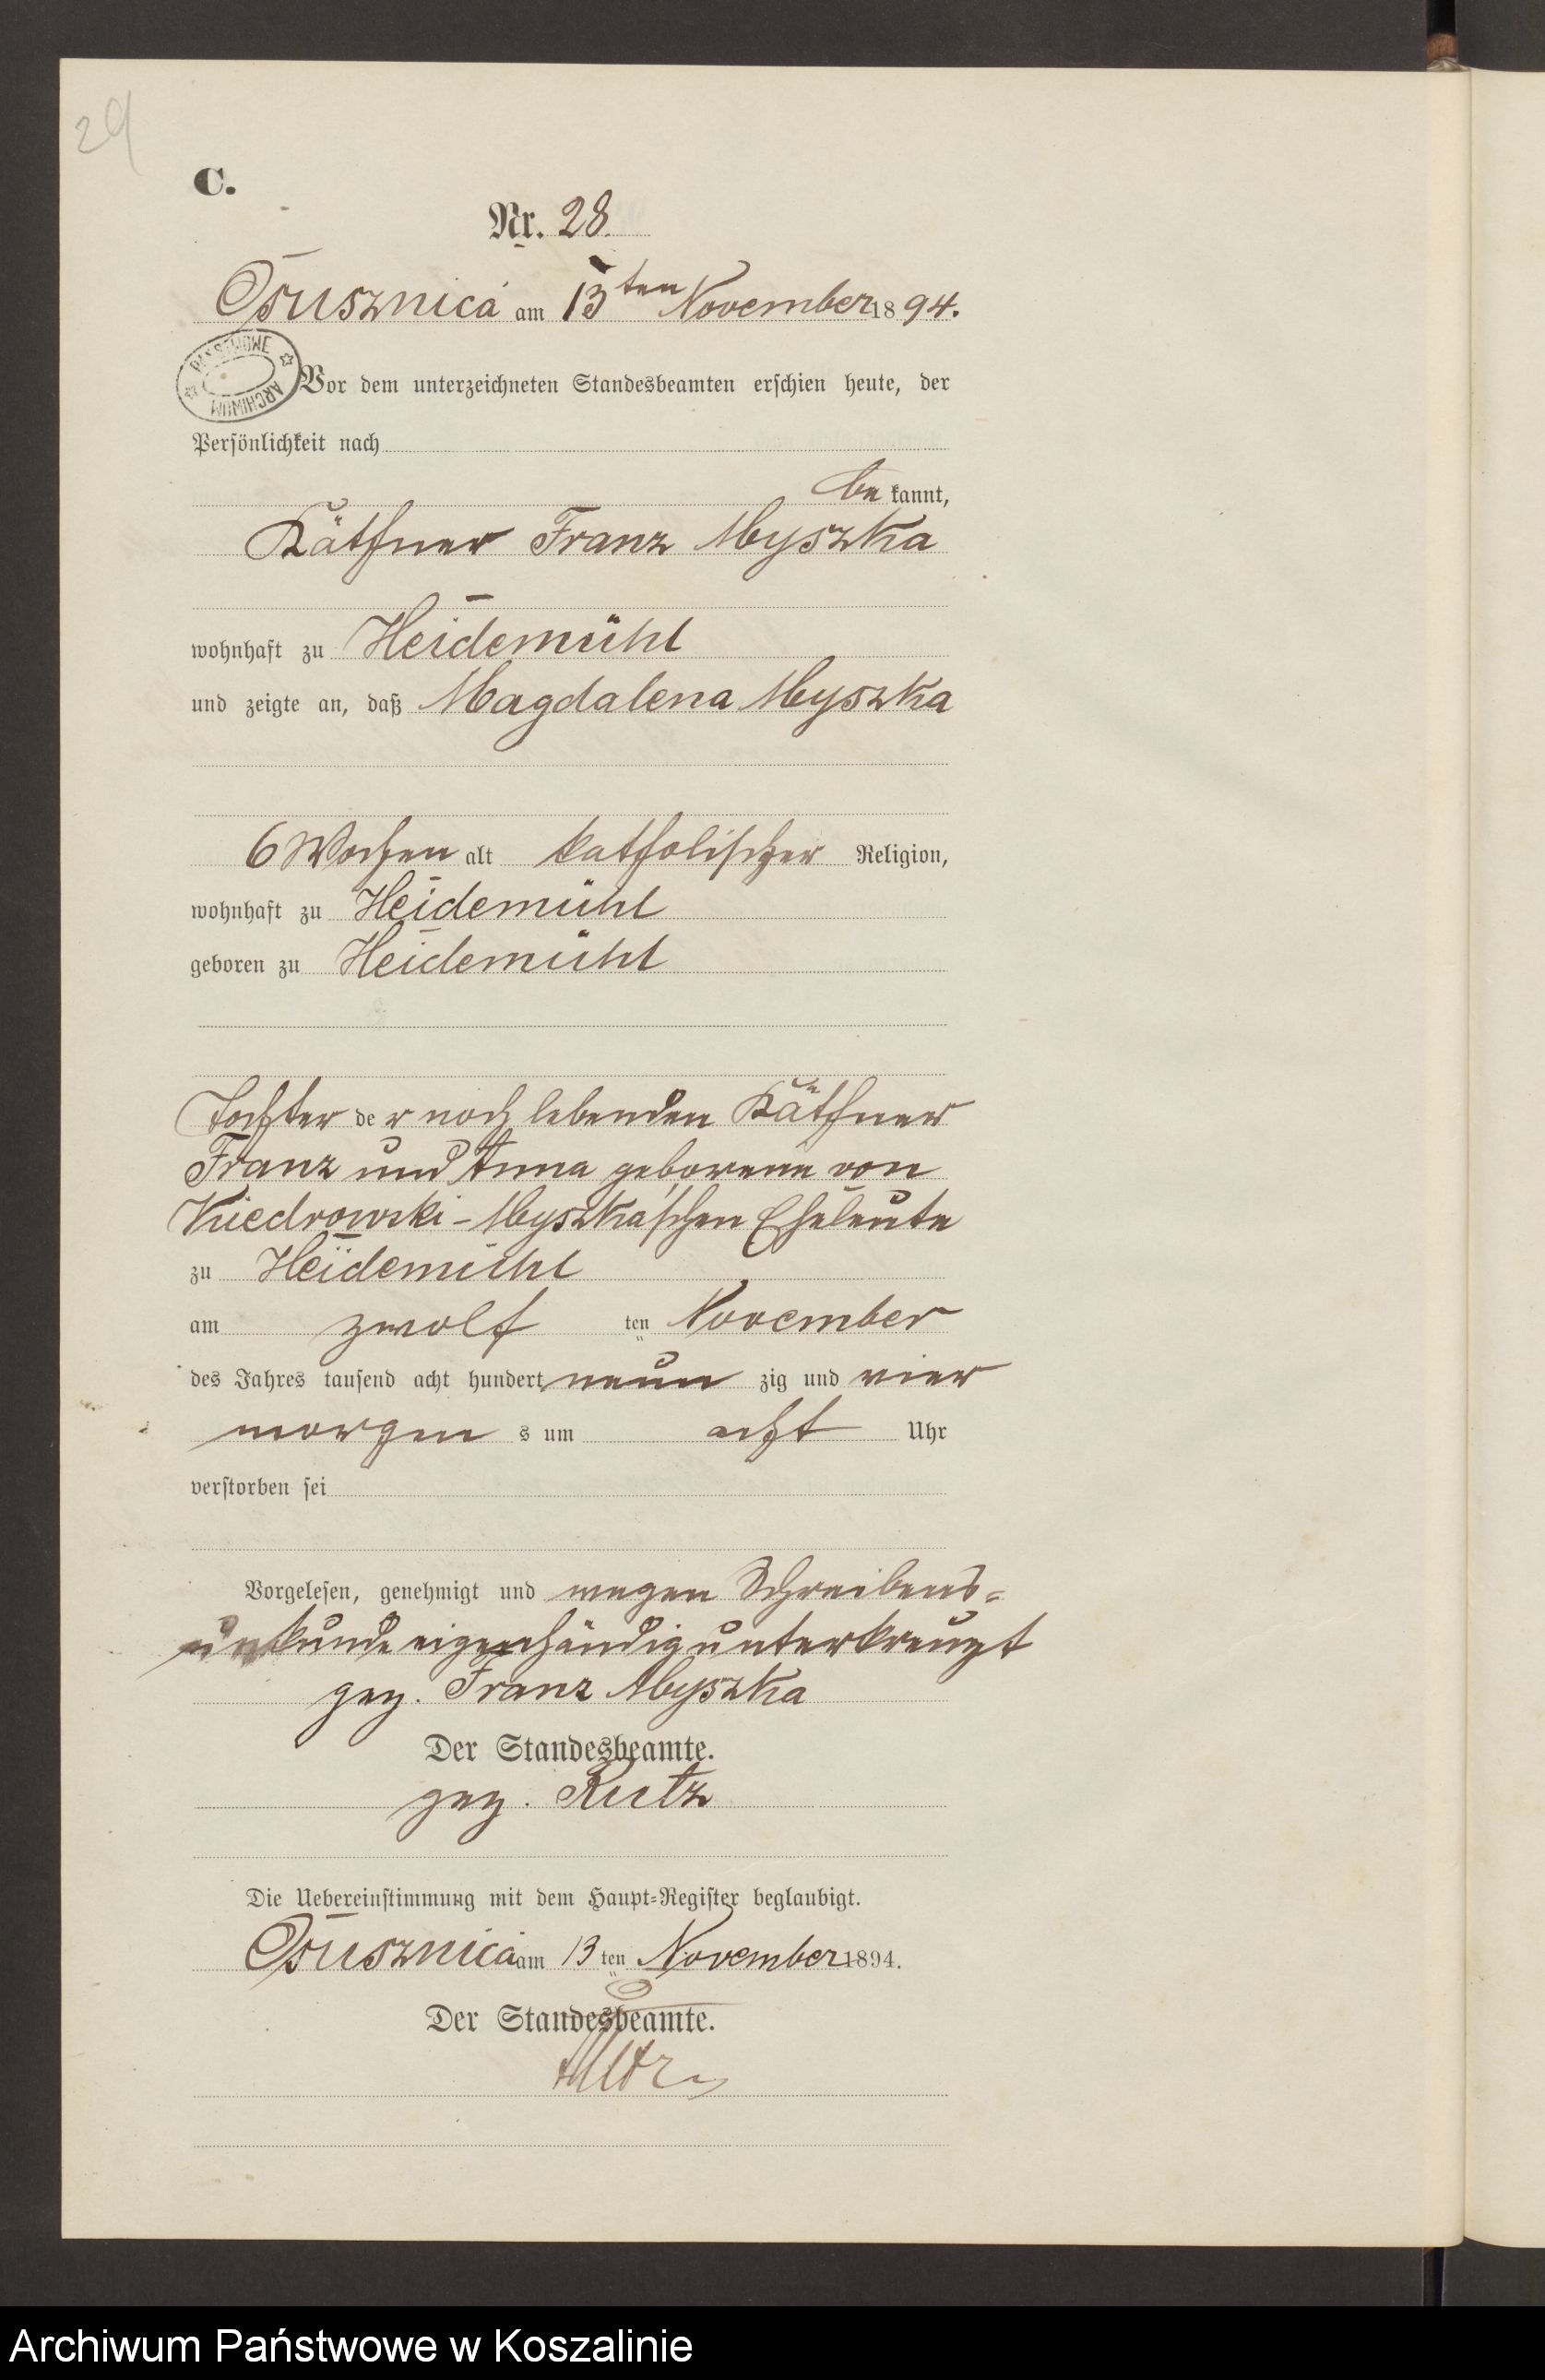 29
C.
Nr. 28.
Osusznica am 13ten November 1894.
PAŃSTWOWE ARCHIWUM
Vor dem unterzeichneten Standesbeamten erschien heute, der
Persönlichkeit nach
be kannt,
Käthner Franz Myszka
wohnhaft zu Heidemühl
und zeigte an, daß Magdalena Myszka
6 Wochen alt katholischer Religion,
wohnhaft zu Heidemühl
geboren zu Heidemühl
Tochter der noch lebenden Käthner
Franz und Anna geborene von
Kiedrowski-Myszka'schen Eheleute
zu Heidemühl
am zwolf ten November
des Jahres tausend acht hundert neun zig und vier
morgen s um acht Uhr
verstorben sei
Vorgelesen, genehmigt und wegen Schreibens-
unkunde eigenhändig unterkreuzt
gez. Franz Myszka
Der Standesbeamte.
gez. Rutz
Die Uebereinstimmung mit dem Haupt-Register beglaubigt.
Osusznica am 13ten November 1894.
Der Standesbeamte.
Rutz
Archiwum Państwowe w Koszalinie